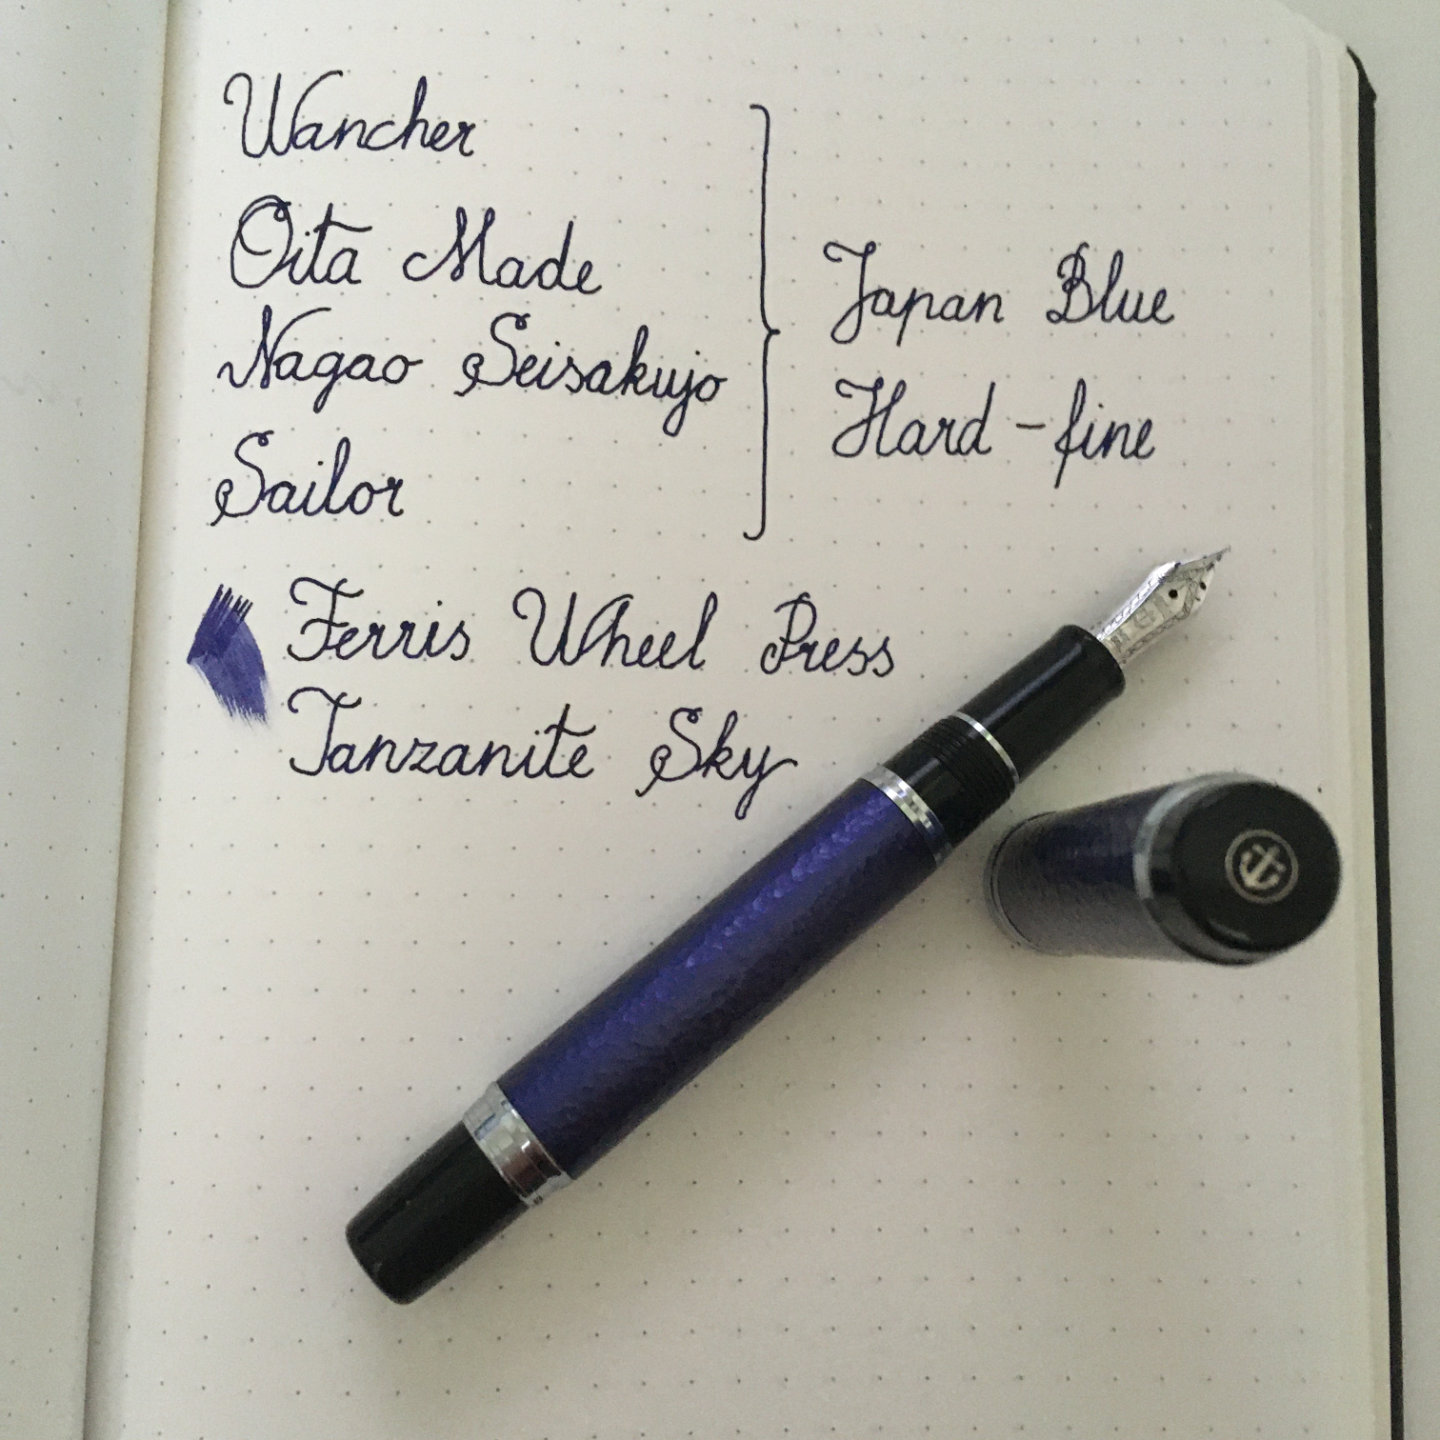 Wancher
Oita Made
Nagao Seisakujo
Sailor
Japan Blue
Hard-fine
Ferris Wheel Press
Tanzanite Sky